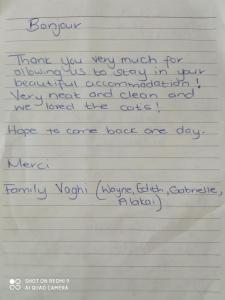 Bonjour
Thank you very much for
allowing us to stay in your
beautiful accommodation!
Very neat and clean and
we loved the cats!
Hope to come back one day.
Merci
Family Voghi (Wayne, Edith, Gabrielle,
Alakai)
SHOT ON REDMI 9
AI QUAD CAMERA